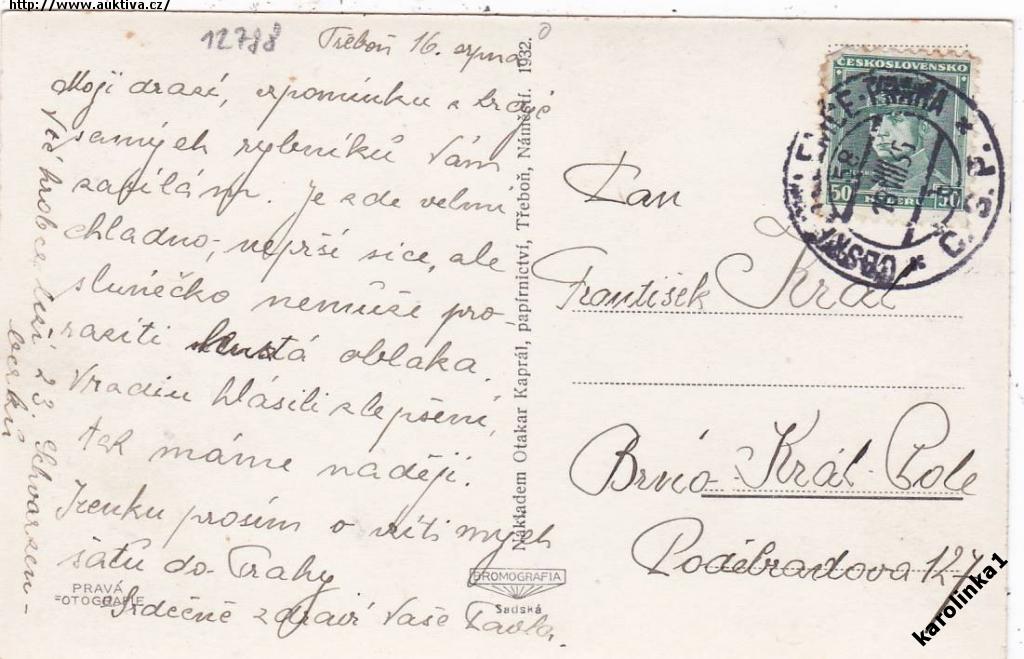 http://www.auktiva.cz/
12788
Třeboň 16. srpna
Moji drazí, vzpomínku z kraje
samých rybníků Vám
zasílám. Je zde velmi
chladno, neprší sice, ale
sluníčko nemůže pro-
raziti hustá oblaka.
V radiu hlásili zlepšení,
tak máme naději.
Irenku prosím o vzití mých
šatů do Prahy
Srdečně zdraví Vaše Pavla.
V té hrobce leží 23 Schvarzen-
berků
PRAVÁ
FOTOGRAFIE
Nákladem Otakar Kaprál, papírnictví, Třeboň, Náměstí. 1932.
BROMOGRAFIA
Sadská
ČESKOSLOVENSKO
50 HALÉŘŮ 50
PRAHA
Pan
František Král
Brno-Král. Pole
Poděbradova 127
karolinka1